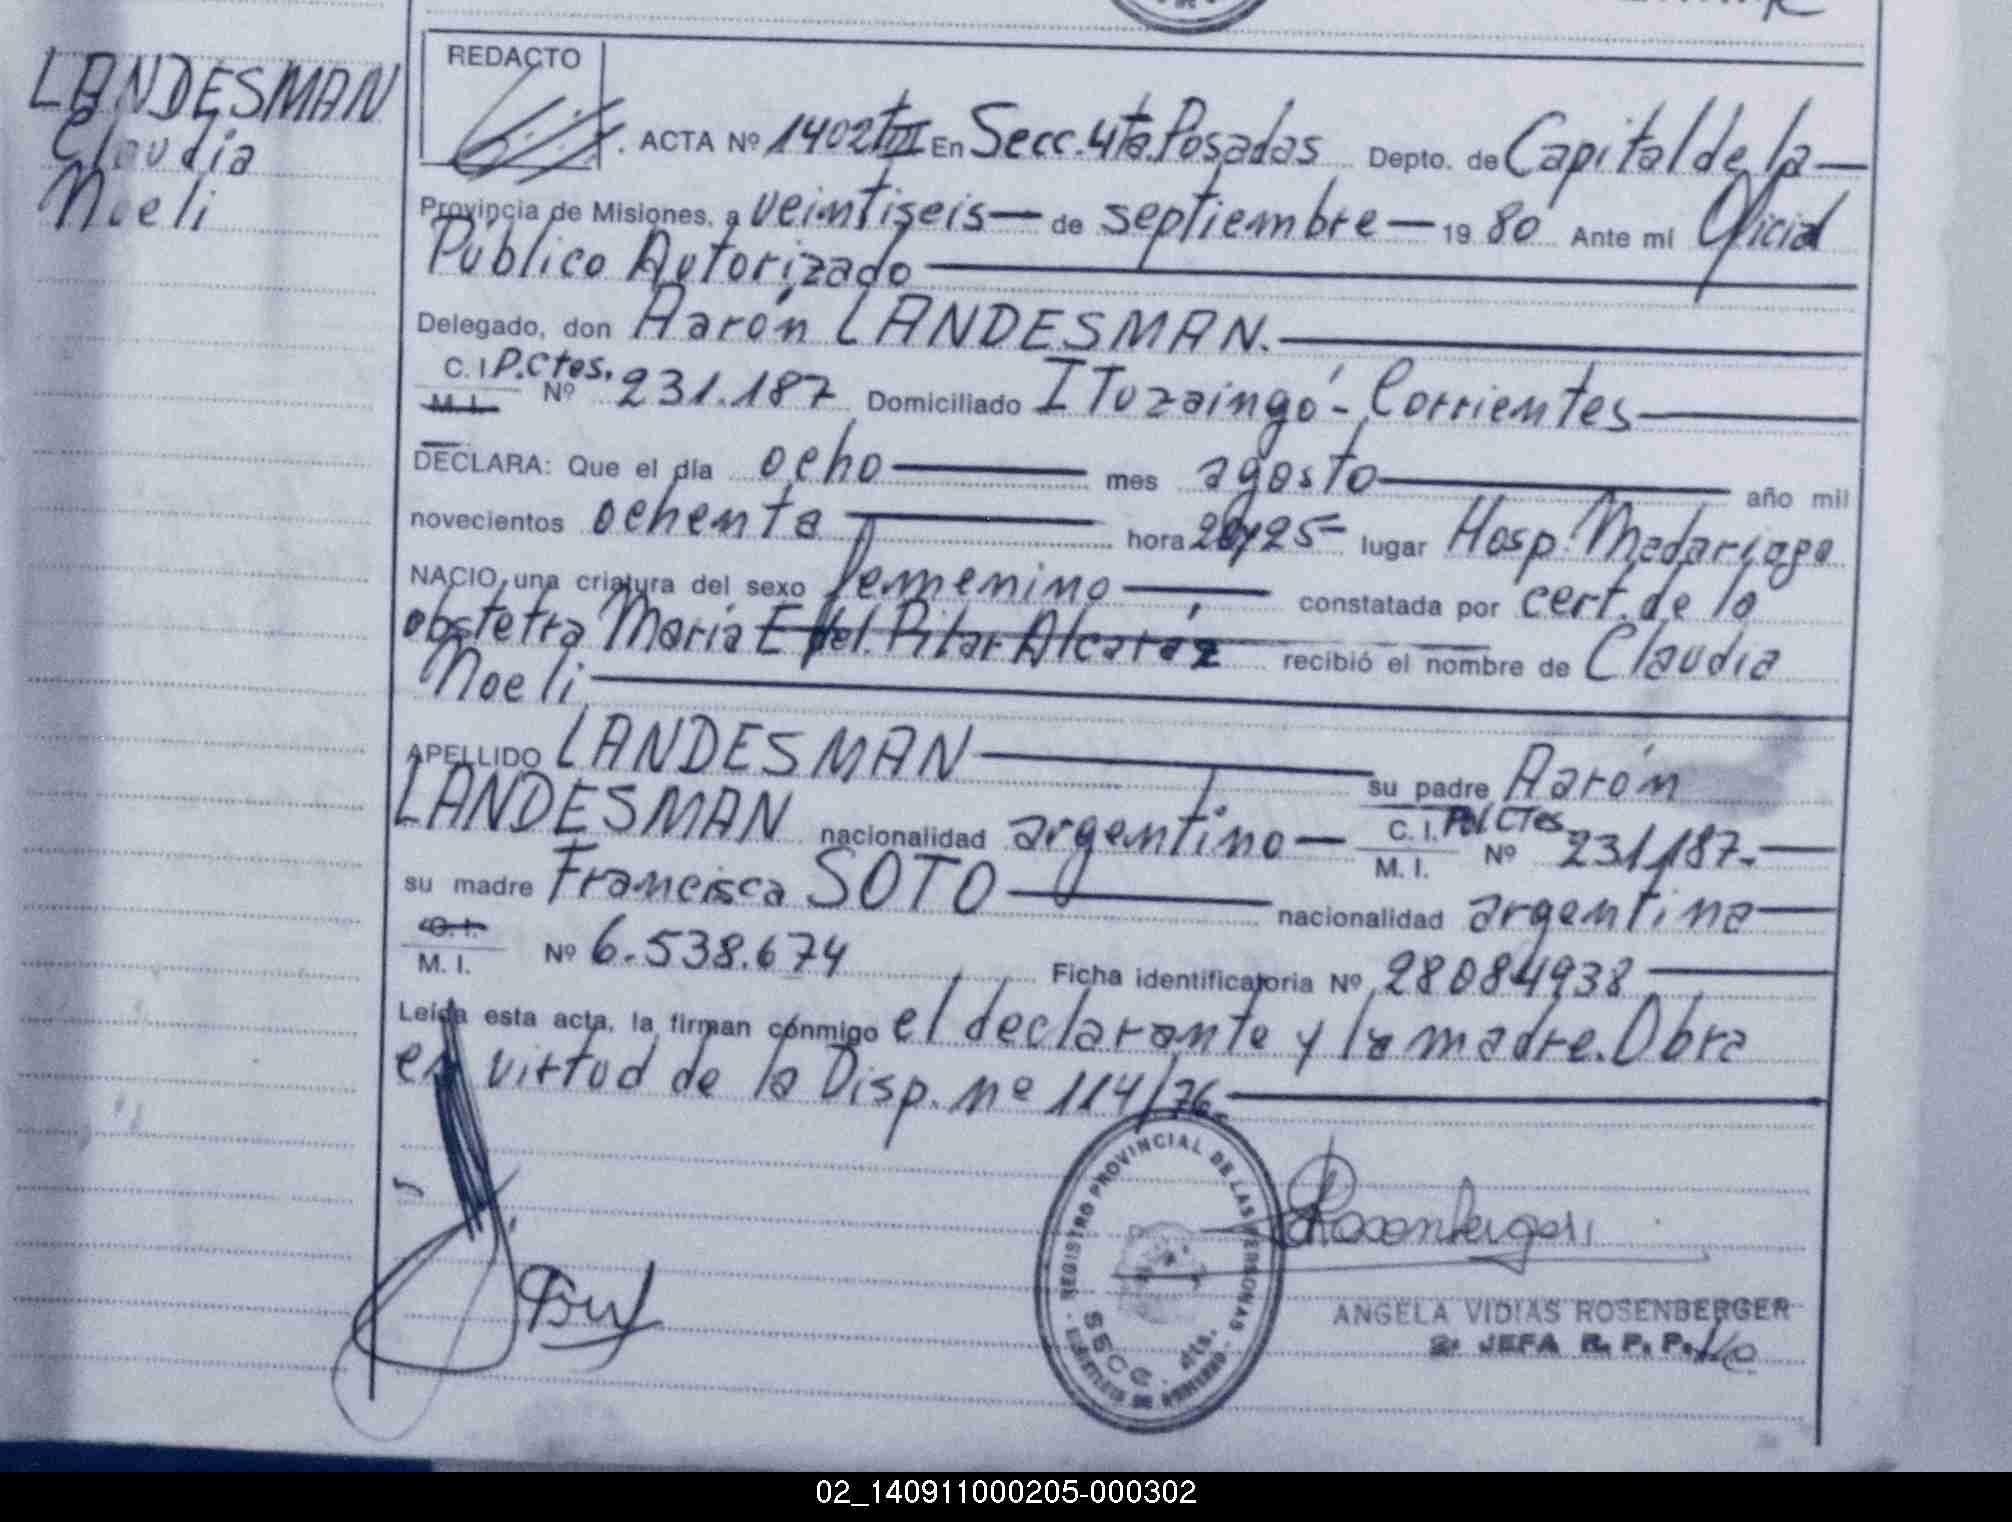 LANDESMAN
Claudia
Noeli
REDACTO
ACTA Nº 1402 tIII En Secc. 4ta. Posadas Depto. de Capital de la
Provincia de Misiones, a veintiseis de septiembre 1980 Ante mi Oficial
Público Autorizado
Delegado, don Aarón LANDESMAN.
C. I. P. Ctes.
M. I. Nº 231.187 Domiciliado ITuzaingó - Corrientes
DECLARA: Que el día ocho mes agosto año mil
novecientos ochenta hora 25 lugar Hosp. Madariaga
NACIO, una criatura del sexo femenino constatada por cert. de la
obstetra María E del Pilar Alcaráz recibió el nombre de Claudia
Noeli
APELLIDO LANDESMAN su padre Aarón
LANDESMAN nacionalidad argentino C. I. Pol Ctes. M. I. Nº 231.187.
su madre Francisca SOTO nacionalidad argentina
C. I.
M. I. Nº 6.538.674 Ficha identificatoria Nº 28084938
Leida esta acta, la firman conmigo el declarante y la madre. Obra
en virtud de la Disp. nº 114/76.
REGISTRO PROVINCIAL DE LAS PERSONAS
SECC. 4ta.
ANGELA VIDIAS ROSENBERGER
2ª JEFA R. P. P.
02_140911000205-000302